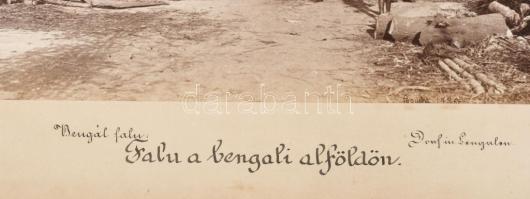 darabanth
Bengál falu.
Dorf in Bengalen.
Falu a bengali alföldön.